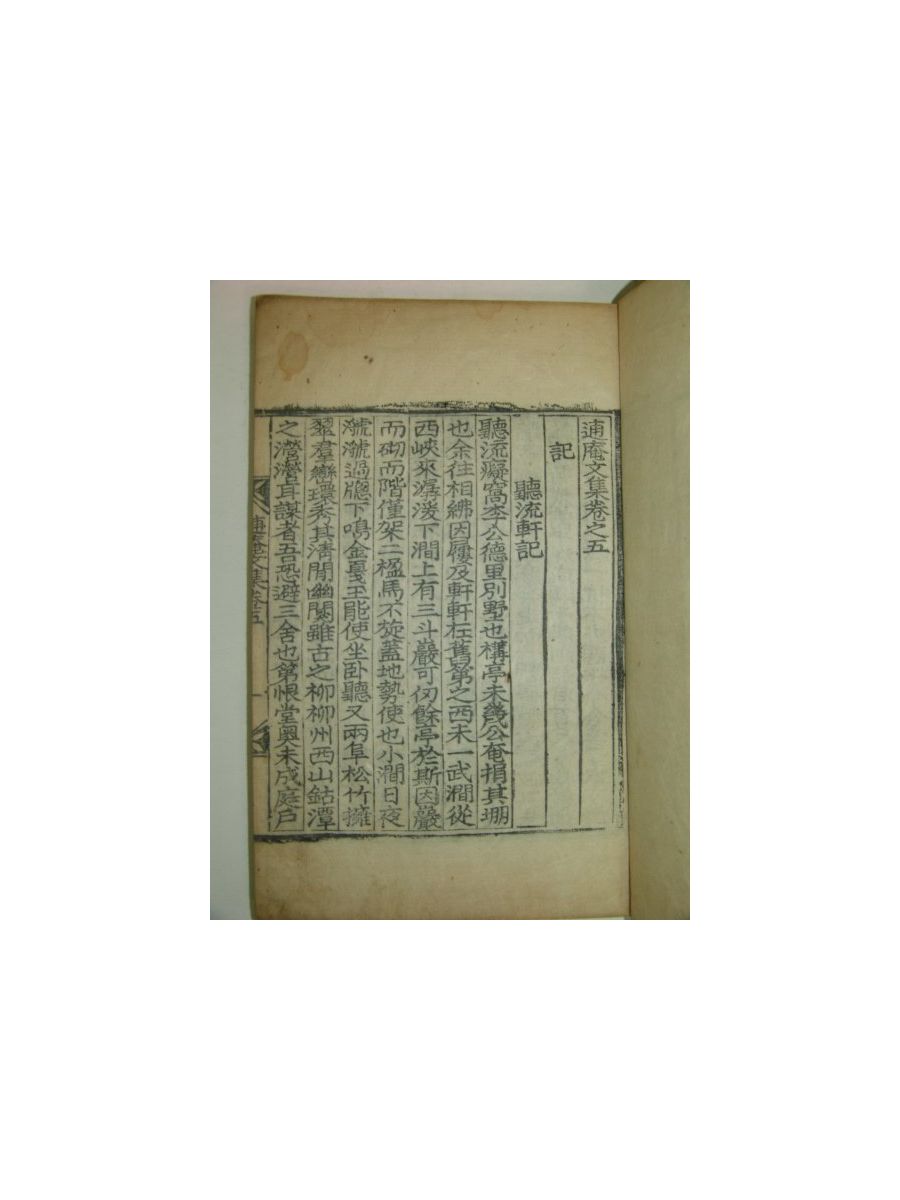 逋庵文集卷之五
記
聽流軒記
聽流癡窩李公德里別墅也構亭未幾公奄捐其珊
也余往相紼因屨及軒軒在舊第之西未一武澗從
西峽來潺湲下澗上有三斗巖可仞餘亭於斯因巖
而砌而階僅架二楹馬不旋蓋地勢使也小澗日夜
㶁㶁過牕下鳴金戛玉能使坐卧聽又兩阜松竹擁
翠羣巒環秀其淸閒幽闃雖古之柳柳州西山鈷潭
之瀯瀯耳謀者吾恐避三舍也第恨堂奧未成庭戶
文集卷五
一